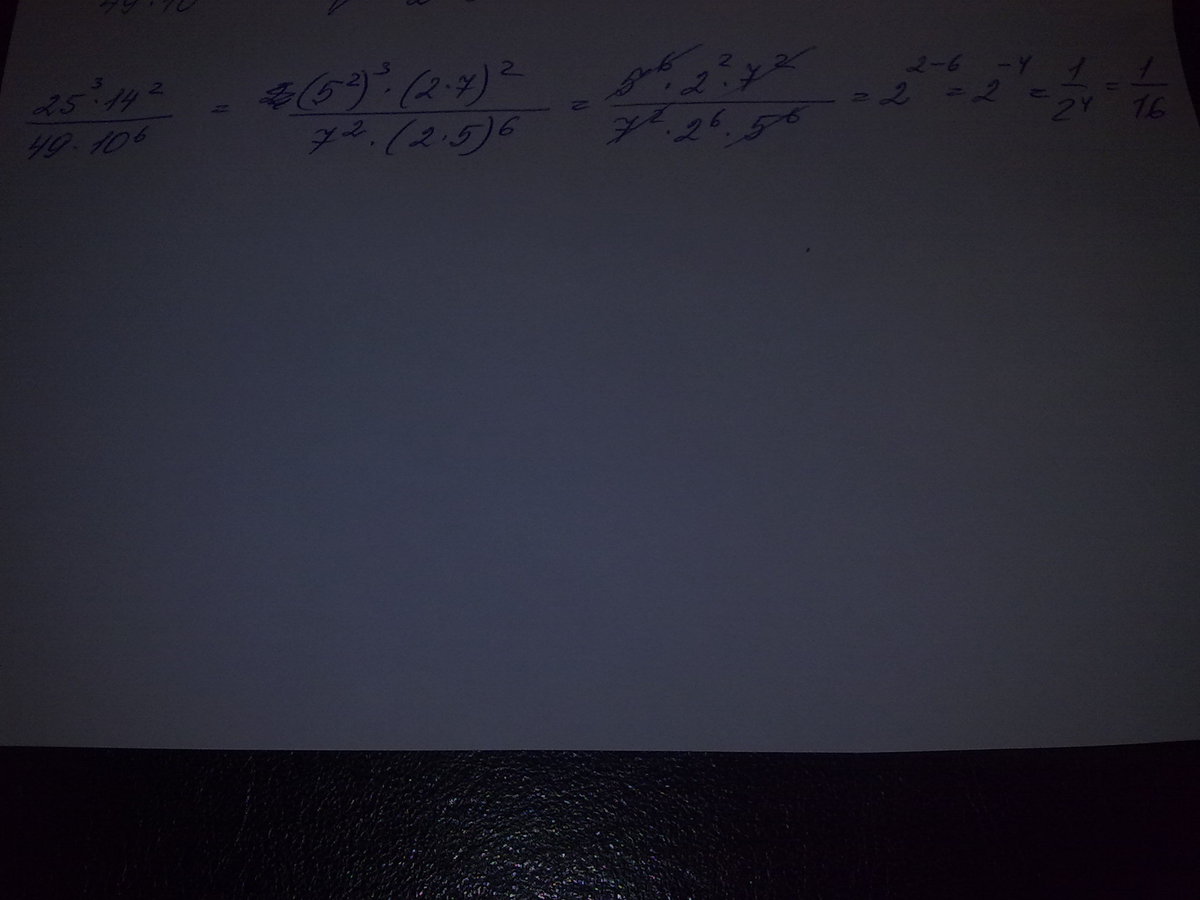 49·10
25³·14² / 49·10⁶ = (5²)³·(2·7)² / 7²·(2·5)⁶ = 5⁶·2²·7² / 7²·2⁶·5⁶ = 2²⁻⁶ = 2⁻⁴ = 1/2⁴ = 1/16